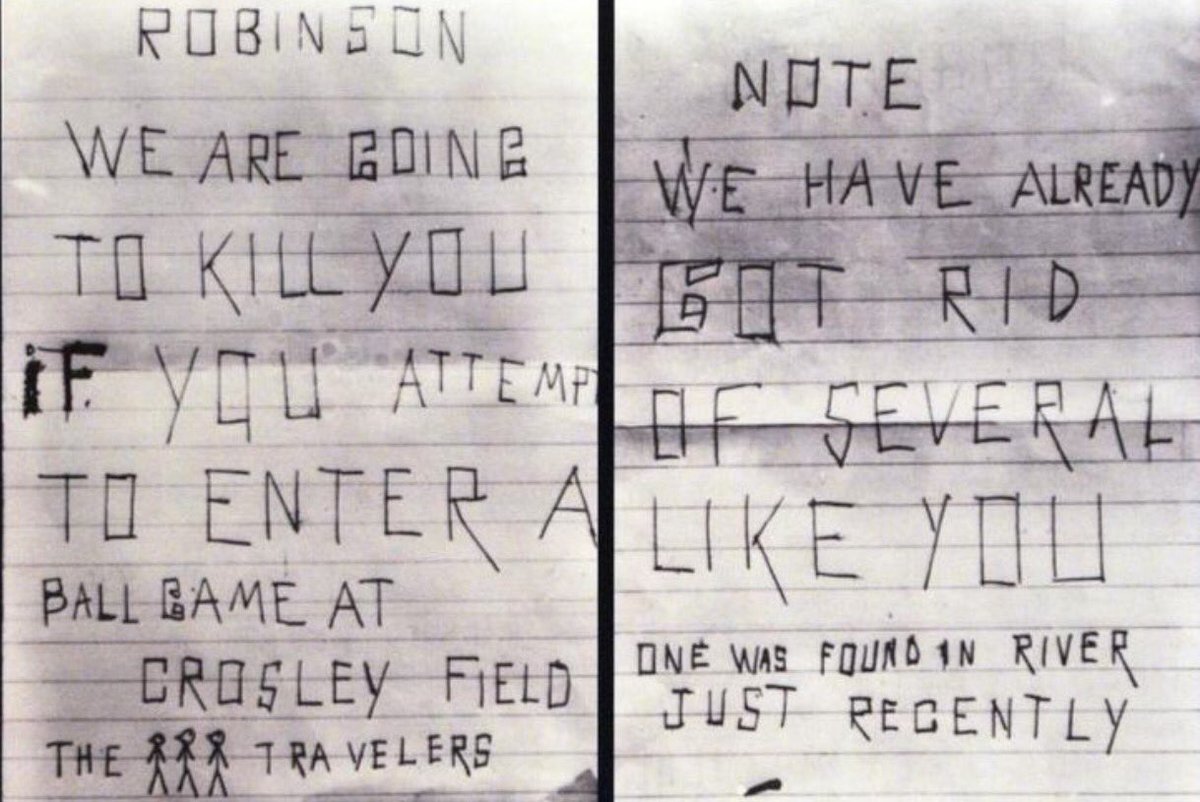 ROBINSON
WE ARE GOING
TO KILL YOU
iF. YOU ATTEMPT
TO ENTER A
BALL GAME AT
CROSLEY FiELD
THE TRAVELERS
NOTE
WE HAVE ALREADY
GOT RID
OF SEVERAL
LIKE YOU
ONE WAS FOUND IN RIVER
JUST RECENTLY